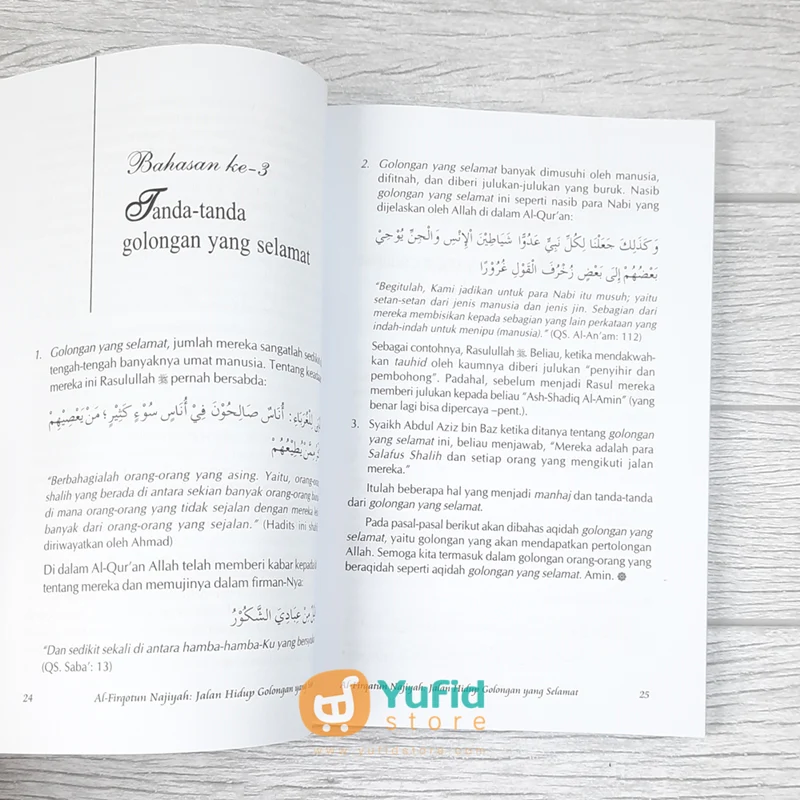 Bahasan ke-3
Tanda-tanda
golongan yang selamat
1. Golongan yang selamat, jumlah mereka sangatlah
tengah-tengah banyaknya umat manusia. Tentang
mereka ini Rasulullah ﷺ pernah bersabda:
أُنَاسٌ صَالِحُوْنَ فِيْ أُنَاسِ سُوْءٍ كَثِيْرٍ؛ مَنْ يَعْصِيْهِمْ
يُطِيْعُهُمْ
"Berbahagialah orang-orang yang asing. Yaitu,
shalih yang berada di antara sekian banyak orang-orang
di mana orang-orang yang tidak sejalan dengan mereka
banyak dari orang-orang yang sejalan." (Hadits ini
diriwayatkan oleh Ahmad)
Di dalam Al-Qur'an Allah telah memberi kabar
tentang mereka dan memujinya dalam firman-Nya:
مِنْ عِبَادِيَ الشَّكُوْرُ
"Dan sedikit sekali di antara hamba-hamba-Ku yang
(QS. Saba': 13)
24 Al-Firqotun Najiyah: Jalan Hidup Golongan
2. Golongan yang selamat banyak dimusuhi oleh manusia,
difitnah, dan diberi julukan-julukan yang buruk. Nasib
golongan yang selamat ini seperti nasib para Nabi yang
dijelaskan oleh Allah di dalam Al-Qur'an:
وَكَذَلِكَ جَعَلْنَا لِكُلِّ نَبِيٍّ عَدُوًّا شَيَاطِيْنَ اْلإِنْسِ وَالْجِنِّ يُوْحِيْ
بَعْضُهُمْ إِلَى بَعْضٍ زُخْرُفَ الْقَوْلِ غُرُوْرًا
"Begitulah, Kami jadikan untuk para Nabi itu musuh; yaitu
setan-setan dari jenis manusia dan jenis jin. Sebagian dari
mereka membisikan kepada sebagian yang lain perkataan yang
indah-indah untuk menipu (manusia)." (QS. Al-An'am: 112)
Sebagai contohnya, Rasulullah ﷺ. Beliau, ketika mendakwah-
kan tauhid oleh kaumnya diberi julukan "penyihir dan
pembohong". Padahal, sebelum menjadi Rasul mereka
memberi julukan kepada beliau "Ash-Shadiq Al-Amin" (yang
benar lagi bisa dipercaya –pent.).
3. Syaikh Abdul Aziz bin Baz ketika ditanya tentang golongan
yang selamat ini, beliau menjawab, "Mereka adalah para
Salafus Shalih dan setiap orang yang mengikuti jalan
mereka."
Itulah beberapa hal yang menjadi manhaj dan tanda-tanda
dari golongan yang selamat.
Pada pasal-pasal berikut akan dibahas aqidah golongan yang
selamat, yaitu golongan yang akan mendapatkan pertolongan
Allah. Semoga kita termasuk dalam golongan orang-orang yang
beraqidah seperti aqidah golongan yang selamat. Amin.
Al-Firqatun Najiyah: Jalan Hidup Golongan yang Selamat 25
Yufid
store
www.yufidstore.com